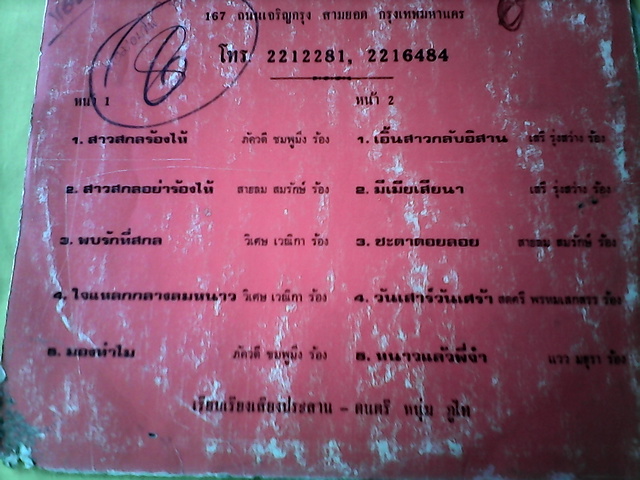 167 ถนนเจริญกรุง สามยอด กรุงเทพมหานคร
โทร. 2212281, 2216484
หน้า 1
1. สาวสกลร้องไห้ ภัควดี ชมพูมิ่ง ร้อง
2. สาวสกลอย่าร้องไห้ สายลม สมรักษ์ ร้อง
3. พบรักที่สกล วิเศษ เวณิกา ร้อง
4. ใจแหลกกลางลมหนาว วิเศษ เวณิกา ร้อง
5. มองทำไม ภัควดี ชมพูมิ่ง ร้อง
หน้า 2
1. เอิ้นสาวกลับอิสาน เสรี รุ่งสว่าง ร้อง
2. มีเมียเสียนา เสรี รุ่งสว่าง ร้อง
3. ชะตาดอยลอย สายลม สมรักษ์ ร้อง
4. วันเสาร์วันเศร้า ร้อง
5. หนาวแล้วพี่จ๋า แวว มยุรา ร้อง
เรียบเรียงเสียงประสาน - ดนตรี หนุ่ม ภูไท